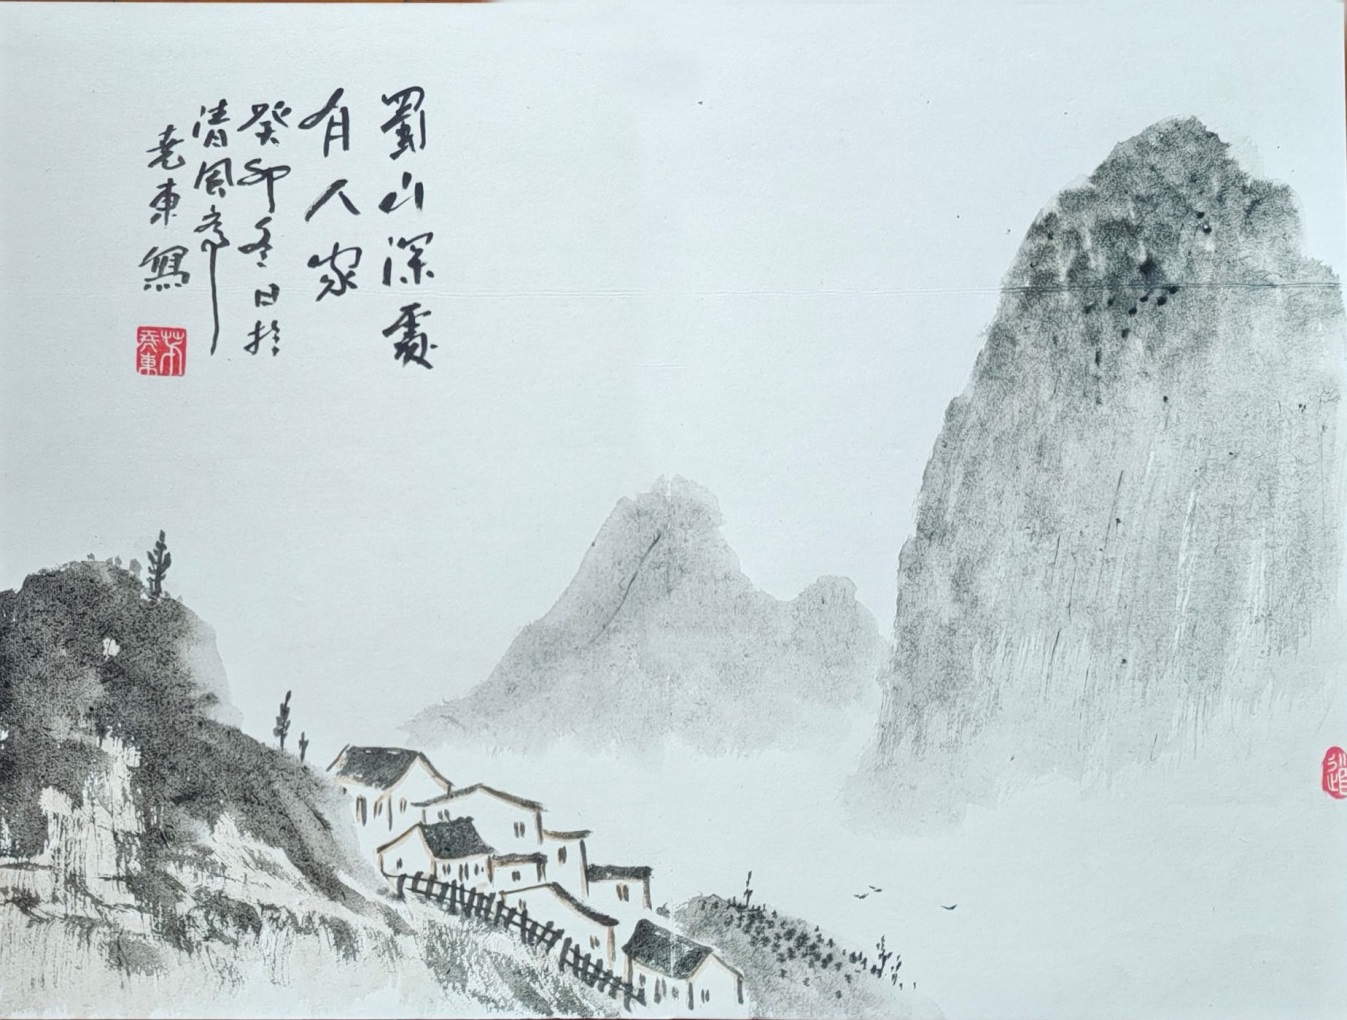 蜀山深處
有人家
癸卯冬日於
清風亭
堯東寫